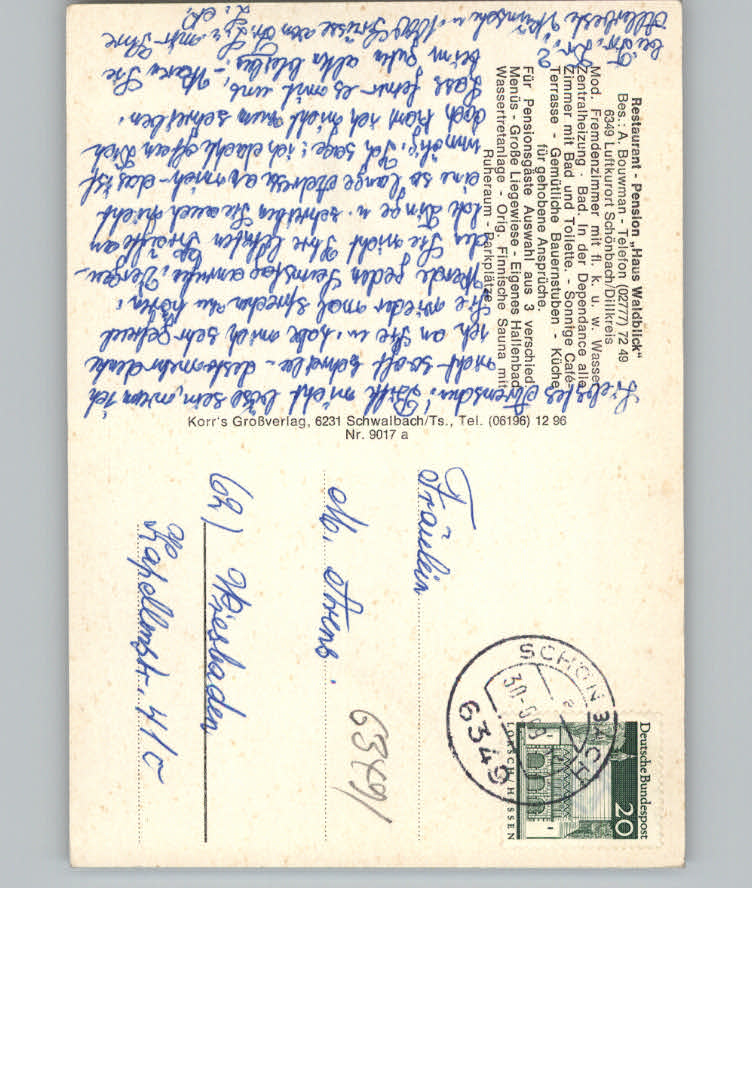 Restaurant - Pension „Haus Waldblick"
Bes.: A. Bouwman - Telefon (02777) 72 49
6349 Luftkurort Schönbach/Dillkreis
Mod. Fremdenzimmer mit fl. k. u. w. Wasser
Zentralheizung · Bad. In der Dependance alle
Zimmer mit Bad und Toilette. - Sonnige Café-
Terrasse - Gemütliche Bauernstuben - Küche
für gehobene Ansprüche.
Für Pensionsgäste Auswahl aus 3 verschied.
Menüs - Große Liegewiese - Eigenes Hallenbad
Wassertretanlage - Orig. Finnische Sauna mit
Ruheraum - Parkplätze
Korr's Großverlag, 6231 Schwalbach/Ts., Tel. (06196) 12 96
Nr. 9017 a
Liebstes Arenschen! Bitte nicht böse sein, wenn ich
nicht so oft schreibe - desto mehr denke
ich an Sie u. habe mich sehr gefreut
Sie wieder mal sprechen zu hören!
Werde jeden Samstag anrufen. Verges-
sen Sie nicht Ihre
Dinge u. schreiben Sie auch nicht
eine so lange Adresse an mich - das ist
unnötig. Ich sage: ich
doch kann ich nicht mehr schreiben.
uns,
beim alten bleiben.
Grüsse von
Ihre
Allerbeste Wünsche u. 1000
Fräulein
M. Arens
(62) Wiesbaden
Kapellenstr. 41/c
6349/
SCHÖNBACH
6349
Deutsche Bundespost
20
LORSCH HESSEN